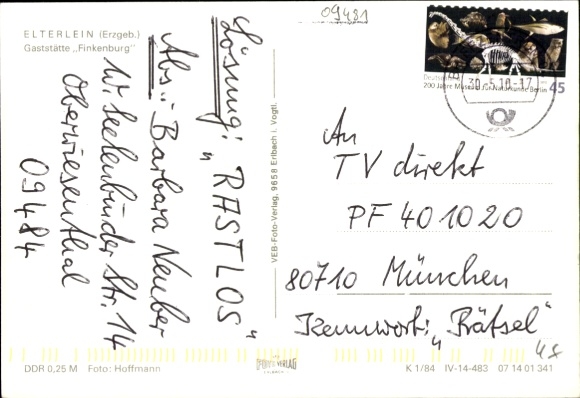 ELTERLEIN (Erzgeb.)
Gaststätte „Finkenburg"
09481
Lösung: „RASTLOS"
Abs.: Barbara Neuber
W. Seelenbinder Str. 14
Oberwiesenthal
09484
VEB-Foto-Verlag, 9658 Erlbach i. Vogtl.
Deutschland
200 Jahre Museum für Naturkunde Berlin
45
30.-5.10.-17
An
TV direkt
PF 401020
80710 München
Kennwort: „Rätsel"
48
DDR 0,25 M Foto: Hoffmann
FOTO VERLAG
ERLBACH
K 1/84 IV-14-483 07 14 01 341